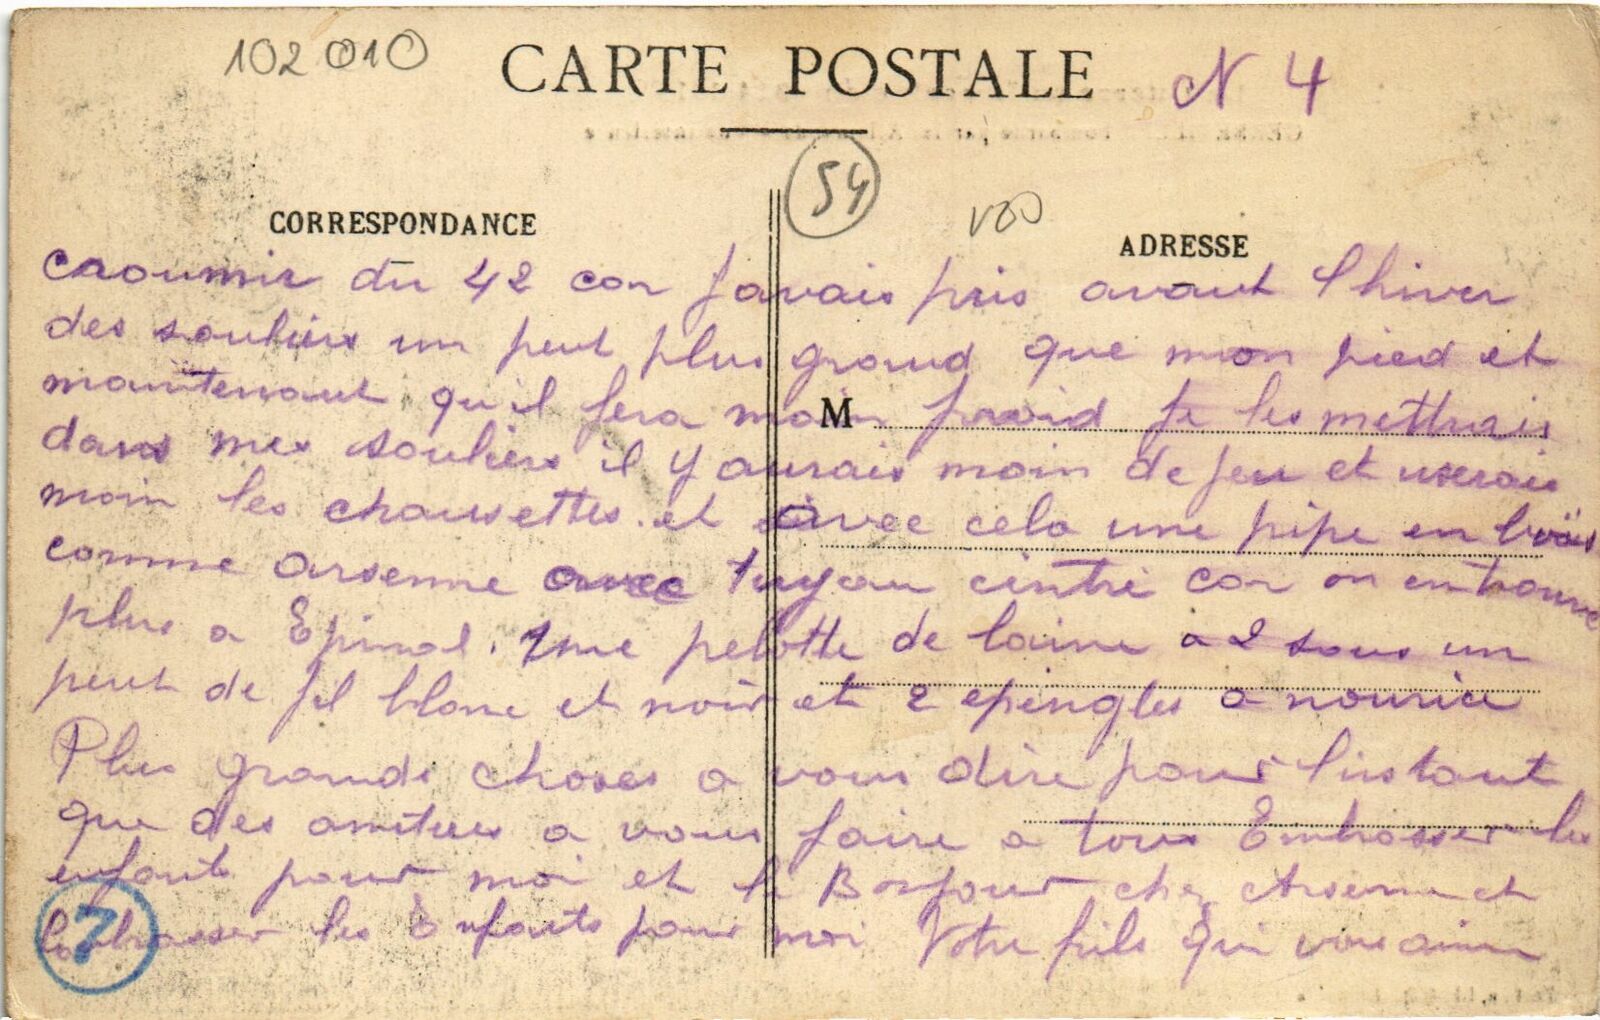 102010
CARTE POSTALE
N 4
54
CORRESPONDANCE
ADRESSE
M
caoumir du 42 car javais pris avant lhiver
des souliers un peut plus grand que mon pied et
maintenant qu'il fera moin froid je les mettrais
dans mes souliers il y aurais moin de jeu et userais
moin les chaussettes. et avec cela une pipe en bois
comme arsenne avec tuyau cintré car on en trouve
plus a Epinal. Une pelotte de laine a 2 sous un
peut de fil blanc et noir et 2 epingles a nourice
Plus grands choses a vous dire pour linstant
que des amitiées a vous faire a tous Embrasser les
enfants pour moi et le Bonjour chez Arsenne et
Embrasser les Enfants pour moi Votre fils qui vous aime
7